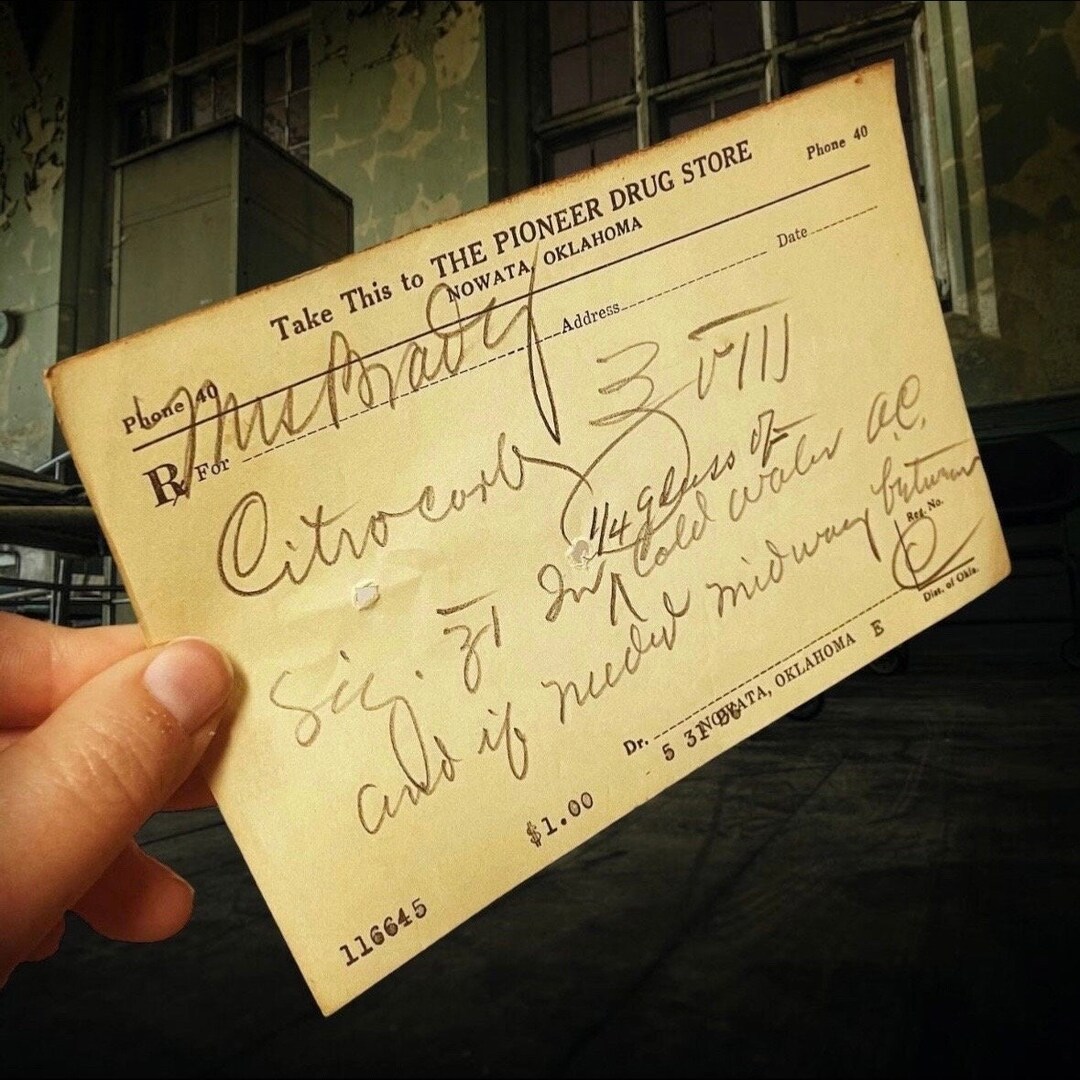 Take This to THE PIONEER DRUG STORE
Phone 40 NOWATA, OKLAHOMA Phone 40
℞ For Mrs Brady Address Date
Citrocarb ℥ VIII
Sig. ʒi In 1/4 glass of cold water a.c.
and if needed midway between
Reg. No.
Dist. of Okla.
Dr.
NOWATA, OKLAHOMA E
5 31 36
$1.00
116645